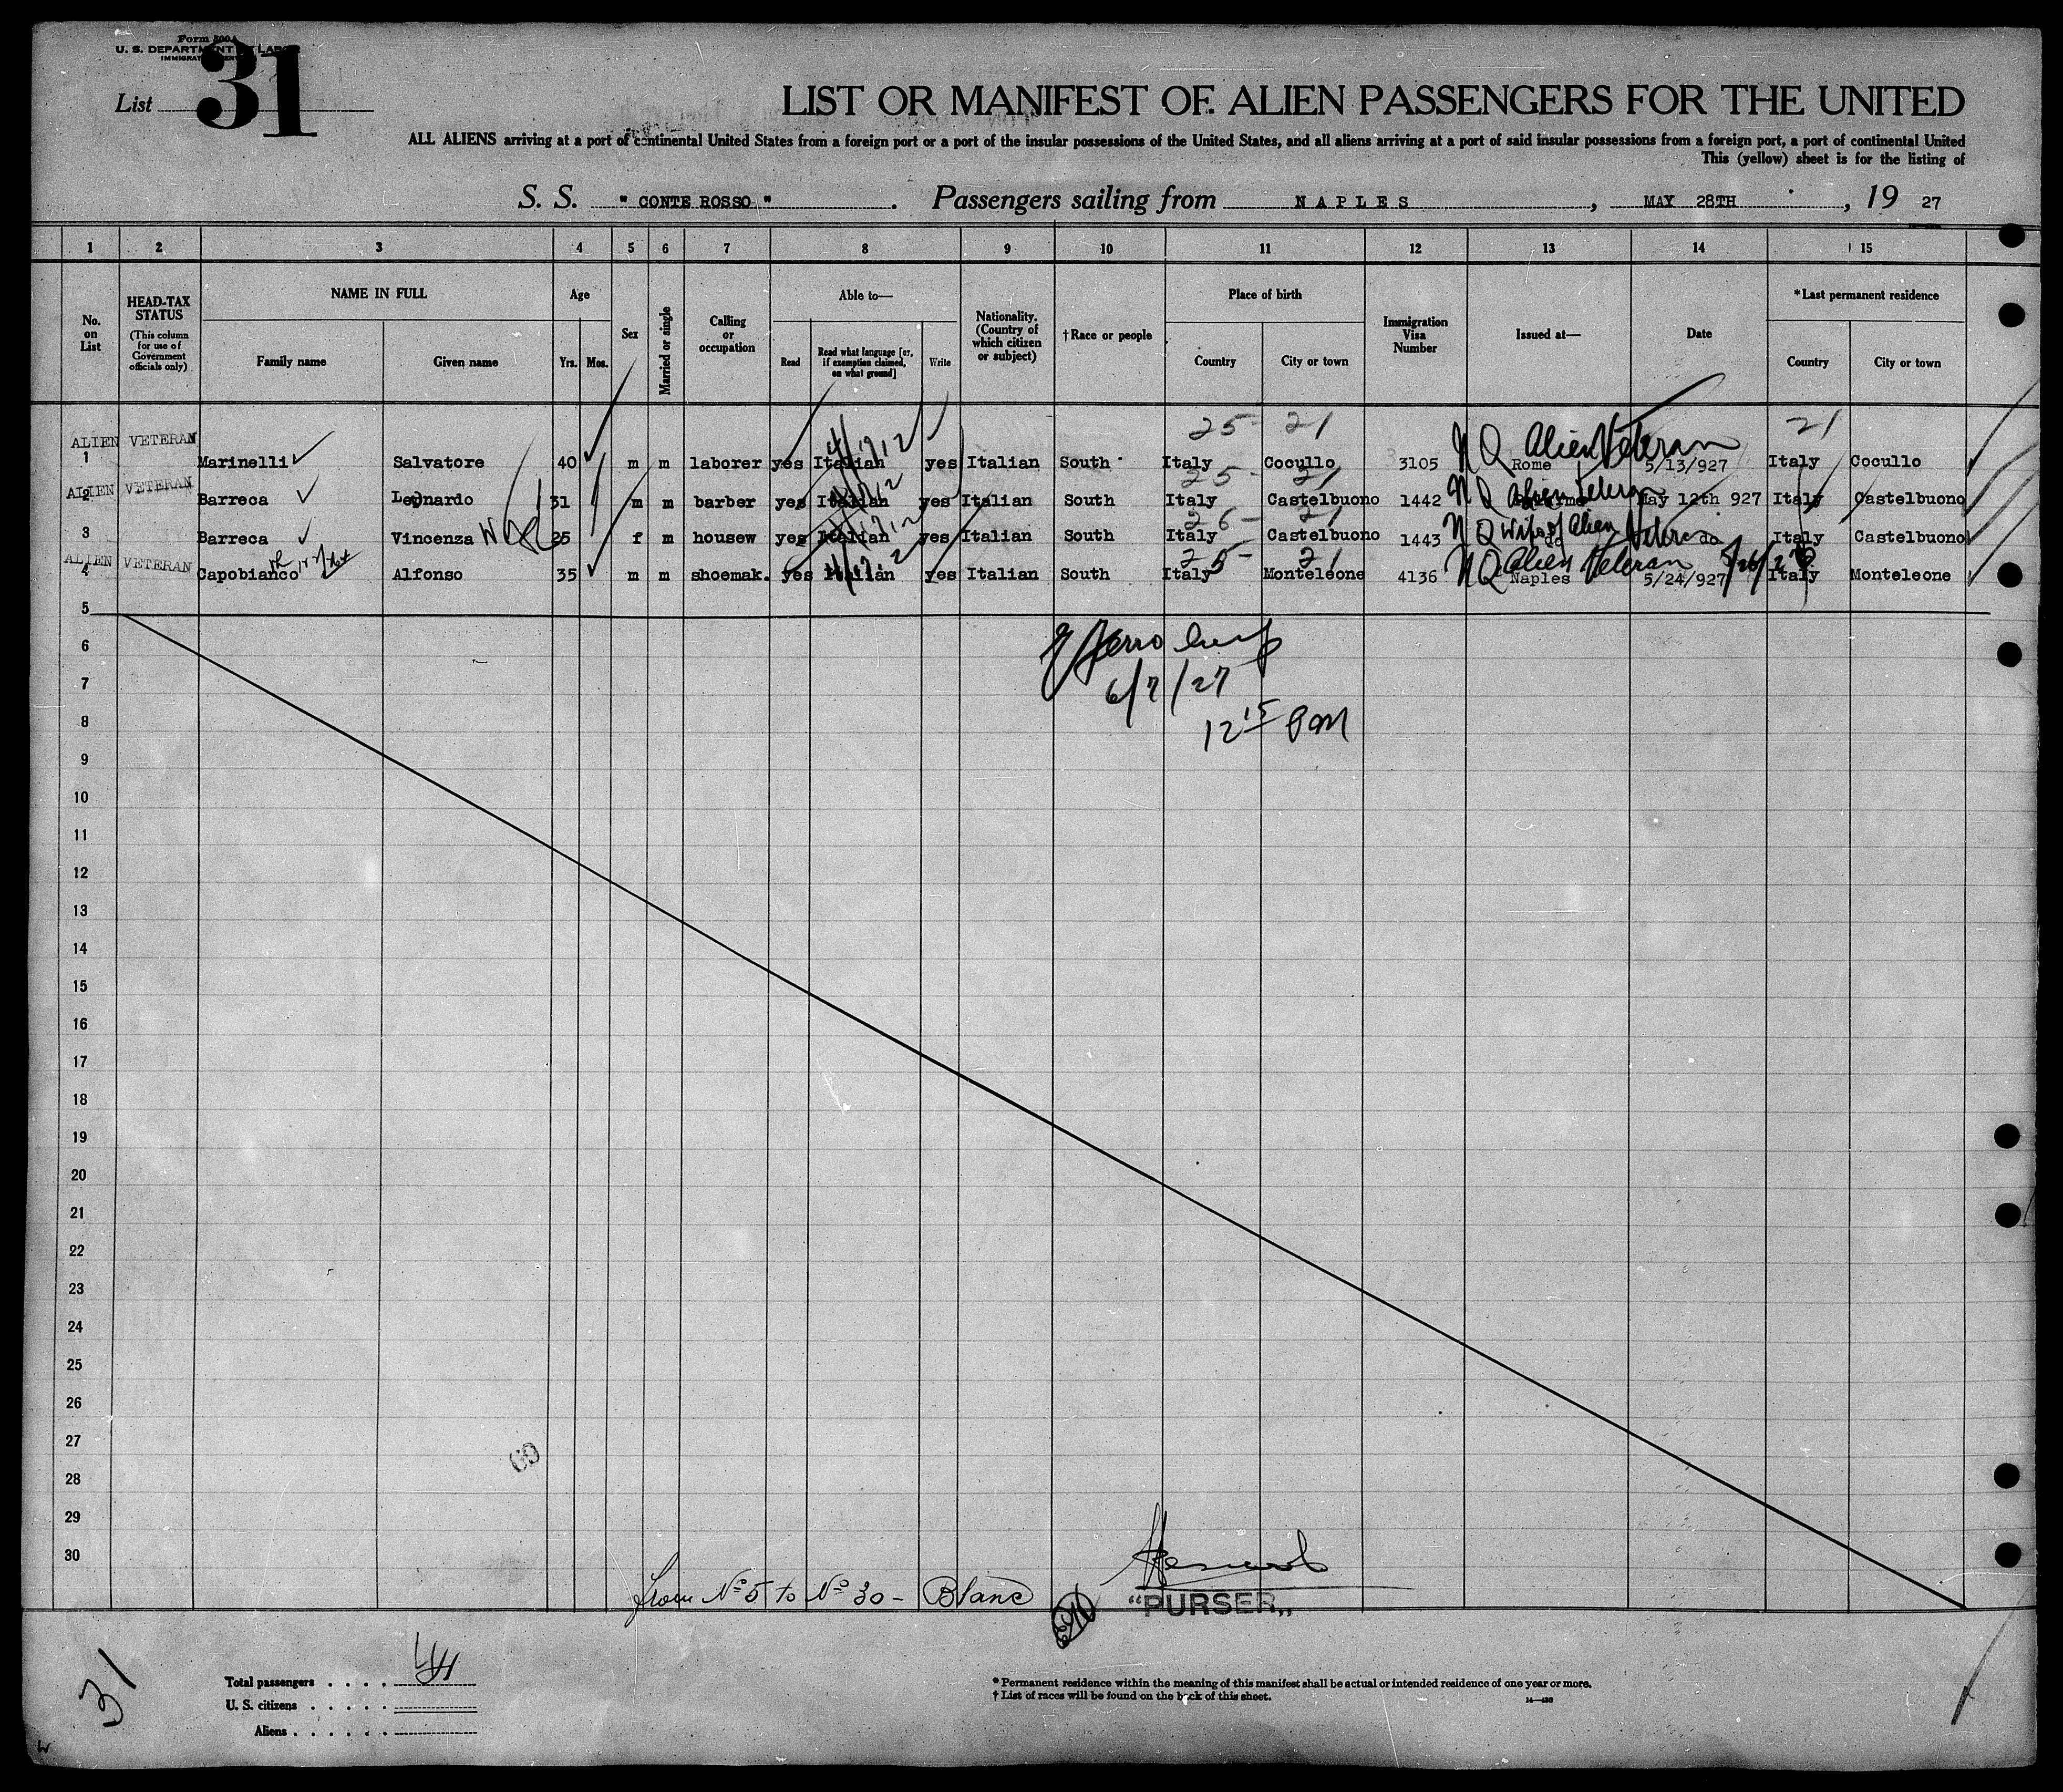 Form 500A
U. S. DEPARTMENT OF LABOR
List 31
LIST OR MANIFEST OF ALIEN PASSENGERS FOR THE UNITED
ALL ALIENS arriving at a port of continental United States from a foreign port or a port of the insular possessions of the United States, and all aliens arriving at a port of said insular possessions from a foreign port, a port of continental United
This (yellow) sheet is for the listing of
S. S. " CONTE ROSSO ". Passengers sailing from NAPLES, MAY 28TH, 19 27
1 2 3 4 5 6 7 8 9 10 11 12 13 14 15
No. on List
HEAD-TAX STATUS
(This column for use of Government officials only)
NAME IN FULL
Family name Given name
Age
Yrs. Mos.
Sex
Married or single
Calling or occupation
Able to—
Read
Read what language [or, if exemption claimed, on what ground]
Write
Nationality. (Country of which citizen or subject)
†Race or people
Place of birth
Country City or town
Immigration Visa Number
Issued at—
Date
*Last permanent residence
Country City or town
25 - 21 21
ALIEN VETERAN
NQ Alien Veteran
1 Marinelli Salvatore 40 m m laborer yes Italian yes Italian South Italy Cocullo 3105 Rome 5/13/927 Italy Cocullo
25 - 21
ALIEN VETERAN
NQ Alien Veteran
2 Barreca Leonardo 31 m m barber yes Italian yes Italian South Italy Castelbuono 1442 May 12th 927 Italy Castelbuono
26 - 21
NQ Wife of Alien Veteran
3 Barreca Vincenza 25 f m housew yes Italian yes Italian South Italy Castelbuono 1443 do do Italy Castelbuono
25 - 21
ALIEN VETERAN
NQ Alien Veteran 5/26/27
4 Capobianco Alfonso 35 m m shoemak. yes Italian yes Italian South Italy Monteleone 4136 Naples 5/24/927 Italy Monteleone
5
6
6/7/27
7
12 15 PM
8
9
10
11
12
13
14
15
16
17
18
19
20
21
22
23
24
25
26
27
28
29
30
from No 5 to No 30 - Blanc
"PURSER"
31
Total passengers . . . .
U. S. citizens . . . . .
Aliens . . . . . .
* Permanent residence within the meaning of this manifest shall be actual or intended residence of one year or more.
† List of races will be found on the back of this sheet.
14—430